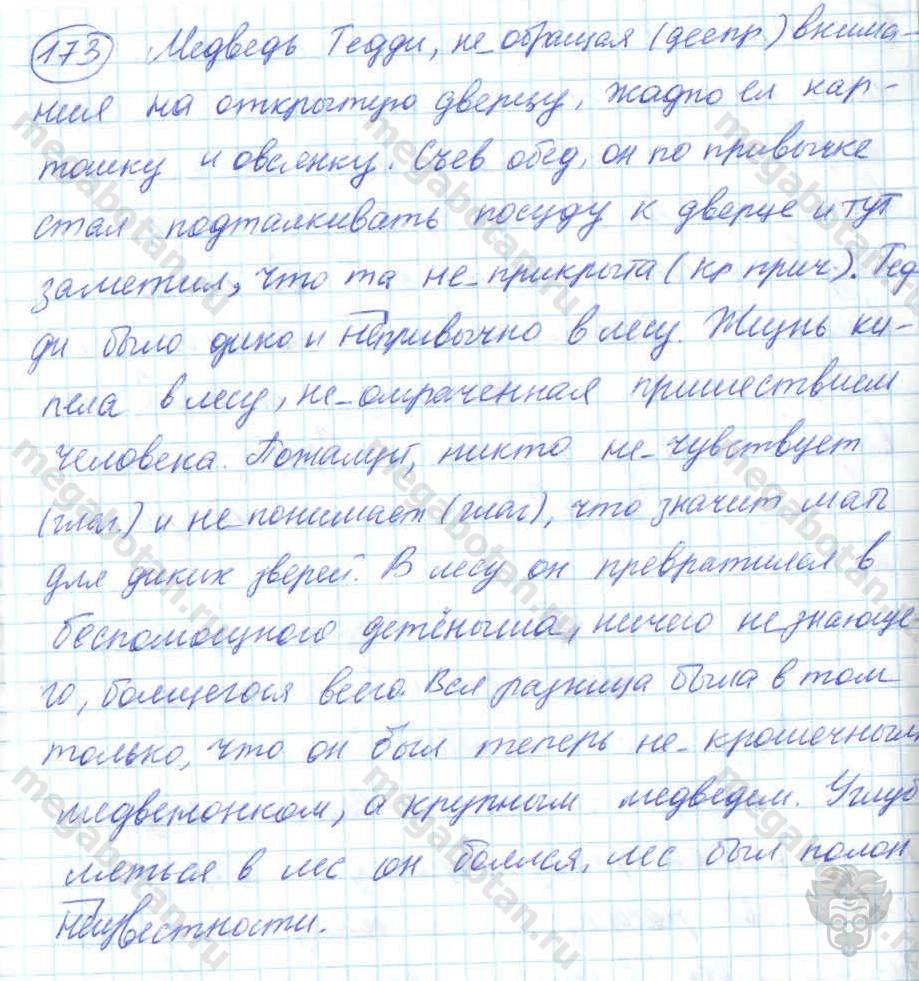 173 Медведь Тедди, не обращая (деепр.) внима-
ния на открытую дверцу, жадно ел кар-
тошку и овсянку. Съев обед, он по привычке
стал подталкивать посуду к дверце и тут
заметил, что та не прикрыта (кр прич.). Тед
ди было дико и непривычно в лесу. Жизнь ки-
пела в лесу, не омраченная пришествием
человека. Пожалуй, никто не чувствует
(глаг.) и не понимает (глаг), что значит мать
для диких зверей. В лесу он превратился в
беспомощного детёныша, ничего не знающе
го, боящегося всего. Вся разница была в том
только, что он был теперь не крошечным
медвежонком, а крупным медведем. Углуб
ляться в лес он боялся, лес был полон
неизвестности.
megabotan.ru